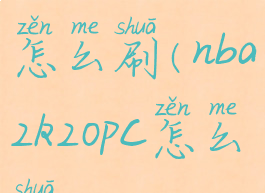 zěn me shuā
怎么刷(nba
zěn me
2k20PC怎么
shuā